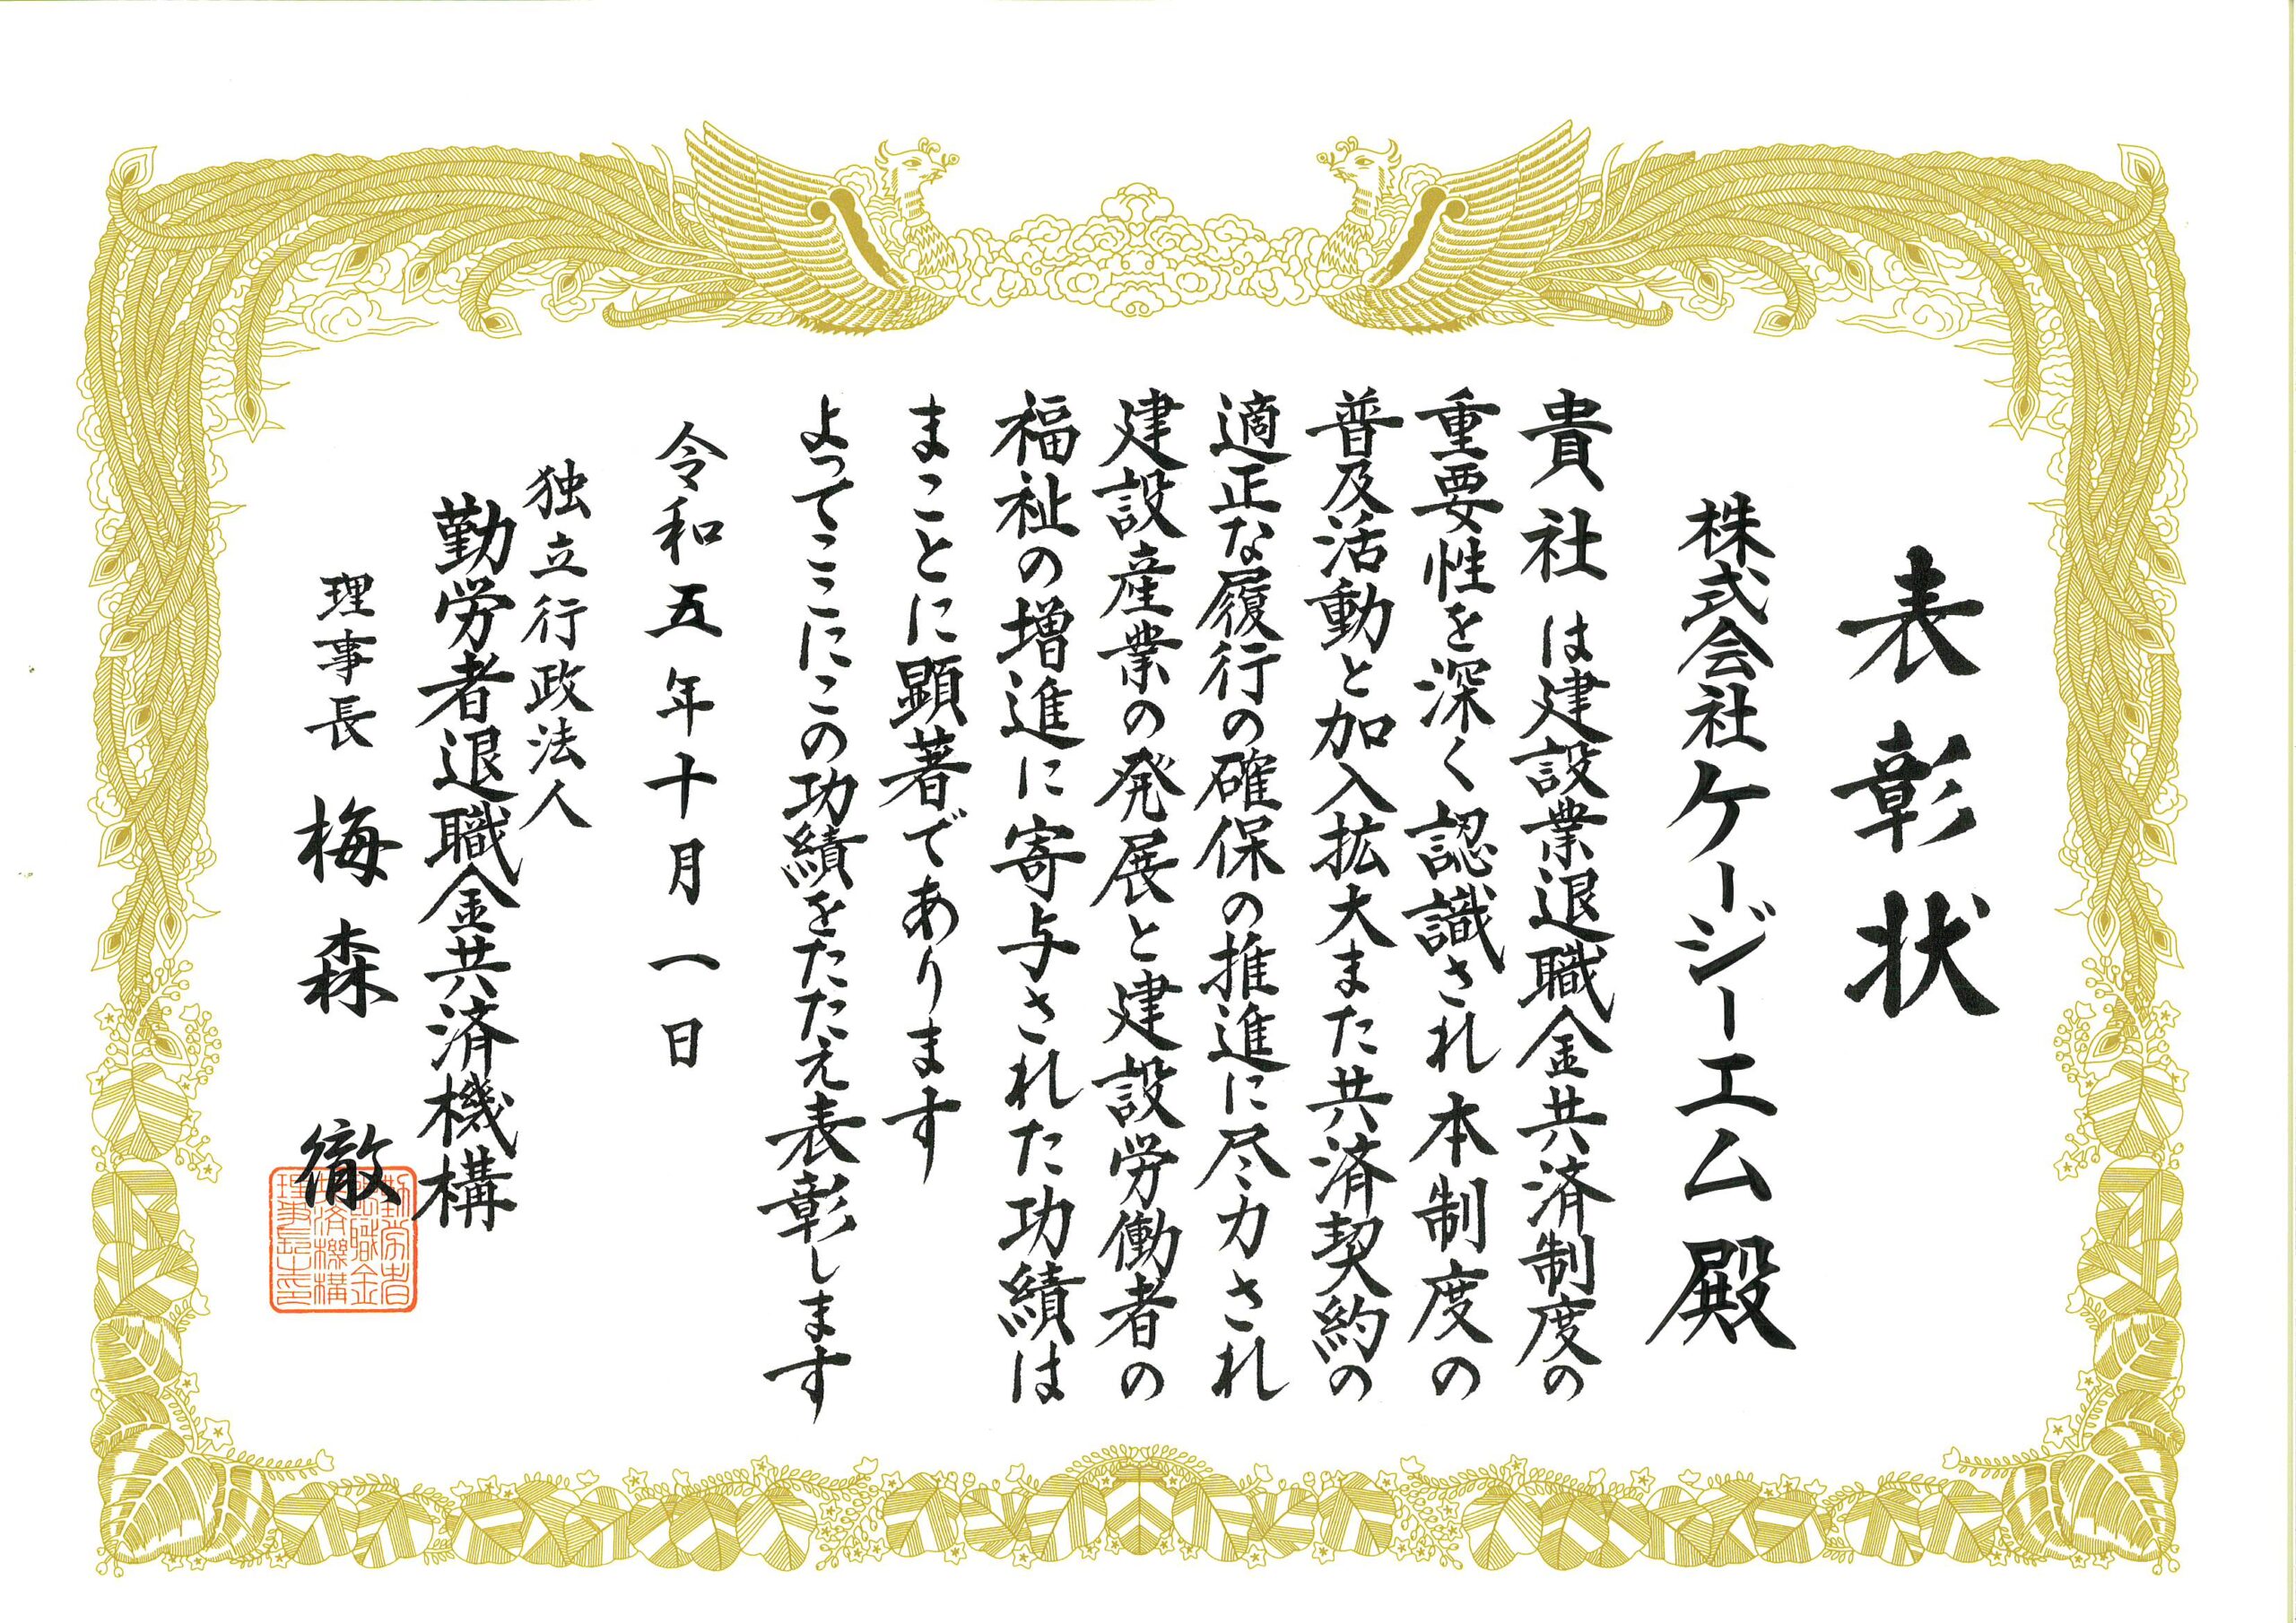 表彰状
株式会社ケージーエム殿
貴社は建設業退職金共済制度の
重要性を深く認識され本制度の
普及活動と加入拡大また共済契約の
適正な履行の確保の推進に尽力され
建設産業の発展と建設労働者の
福祉の増進に寄与された功績は
まことに顕著であります
よってここにこの功績をたたえ表彰します
令和五年十月一日
独立行政法人
勤労者退職金共済機構
理事長 梅森 徹
勤労者
退職金
共済機構
理事長之印